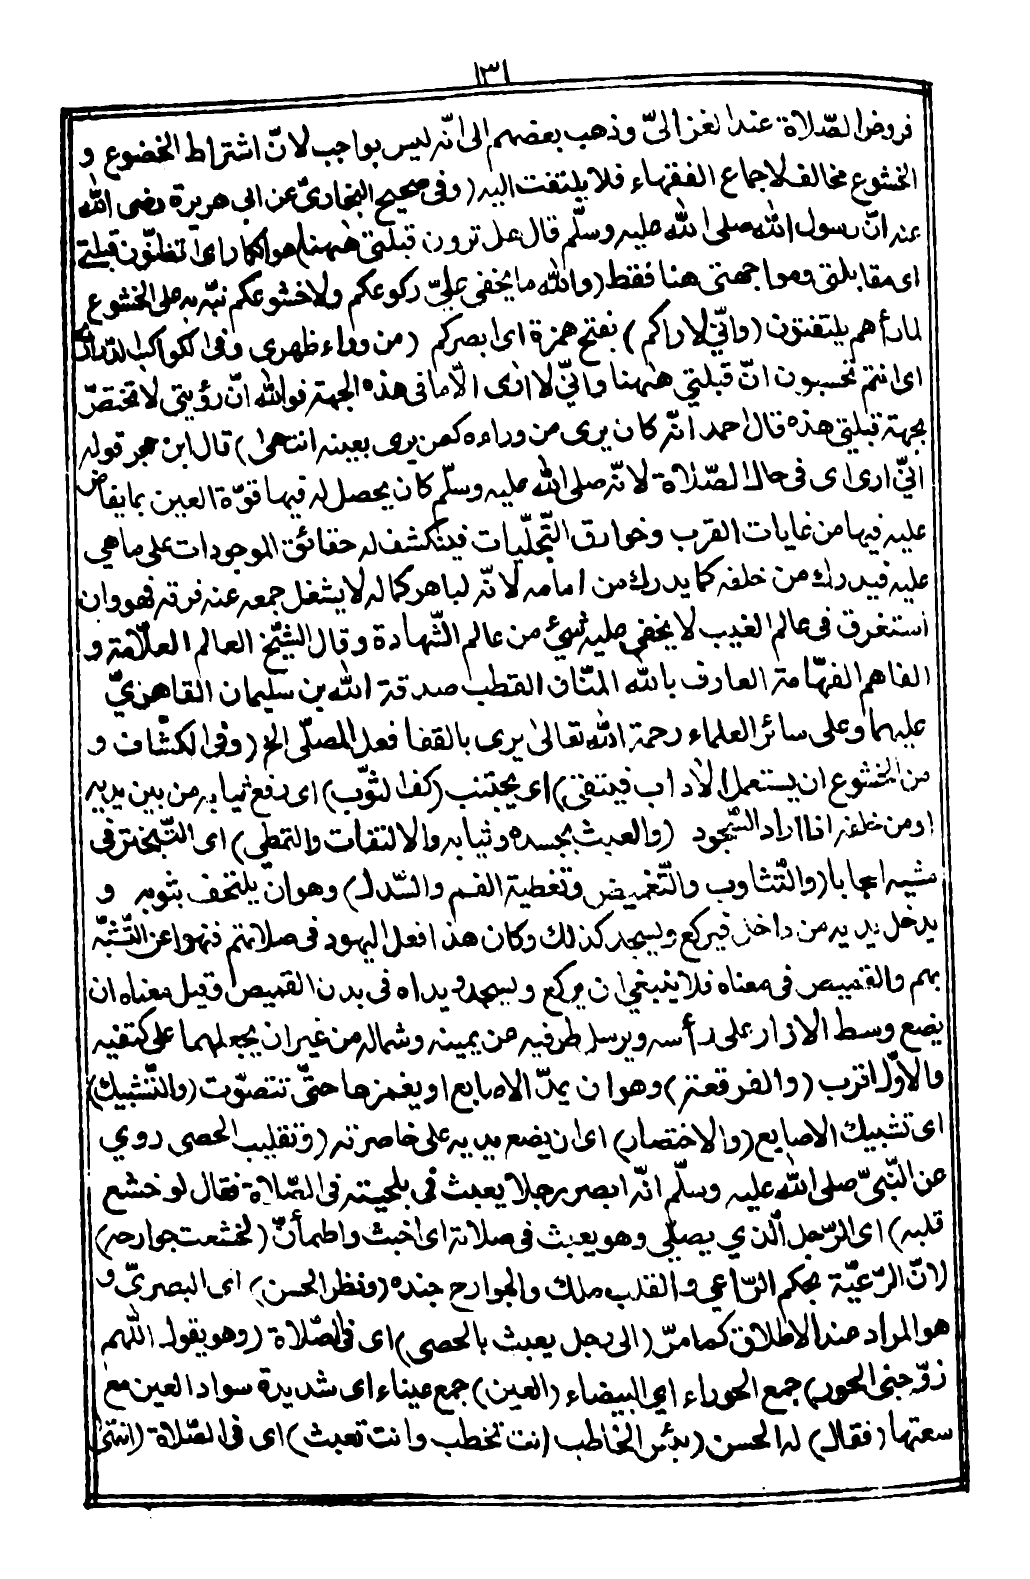 ١٣١
فروض الصّلاة عند الغزالىّ وذهب بعضهم الى انّه ليس بواجب لانّ اشتراط الخضوع و
الخشوع مخالف لاجماع الفقهاء فلا يلتفت اليه (وفى صحيح البخارىّ عن ابى هريرة رضى الله
عنه انّ رسول الله صلى الله عليه وسلّم قال هل ترون قبلتى ههنا) هو انكار اى اتظنّون قبلتى
اى مقابلتى ومواجهتى هنا فقط (والله ما يخفى علىّ ركوعكم ولا خشوعكم نبّه به على الخشوع
لما رأهم يلتفتون (وانّي لاراكم) بفتح همزة اى ابصركم (من وراء ظهرى وفى الكواكب الدّرارى
اى انتم تحسبون انّ قبلتي ههنا وانّي لا ارى الّا ما فى هذه الجهة فوالله انّ رؤيتى لا تختصّ
بجهة قبلتي هذه قال احمد انّه كان يرى من وراءه كمن يرى بعينه انتهى) قال ابن حجر قوله
انّي ارى اى فى حال الصّلاة لانّه صلى الله عليه وسلّم كان يحصل له فيها قوّة العين بما يفاض
عليه فيها من غايات القرب وخوارق التّجلّيات فينكشف له حقائق الموجودات على ما هي
عليه فيدرك من خلفه كما يدرك من امامه لانّه لباهر كماله لا يشغل جمعه عنه فرقه فهو وان
استغرق فى عالم الغيب لا يخفى عليه شيئ من عالم الشّهادة وقال الشّيخ العالم العلّامة و
الفاهم الفهّامة العارف بالله المنّان القطب صدقة الله بن سليمان القاهريّ
عليهما وعلى سائر العلماء رحمة الله تعالى يرى بالقفا فعل المصلّى الخ (وفى الكشّاف و
من الخشوع ان يستعمل الاداب فيتقى) اى يجتنب (كفّ الثوب) اى رفع ثيابه من بين يديه
او من خلفه اذا اراد السّجود (والعبث بجسده وثيابه والالتفات والتمطي) اى التّبختر فى
مشيه اعجابا (والتّثاوب والتّغميض وتغطية الفم والسّدل) وهو ان يلتحف بثوبه و
يدخل يديه من داخل فيركع ويسجد كذلك وكان هذا فعل اليهود فى صلاتهم فنهوا عن التّشبّه
بهم والقميص فى معناه فلا ينبغي ان يركع ويسجد ويداه فى بدن القميص وقيل معناه ان
يضع وسط الازار على رأسه ويرسل طرفيه عن يمينه وشماله من غير ان يجعلهما على كتفيه
والاوّل اقرب (والفرقعة) وهو ان يمدّ الاصابع او يغمزها حتّى تتصوّت (والتّشبيك)
اى تشبيك الاصابع (والاختصار) اى ان يضع يديه على خاصرته (وتقليب الحصى روي
عن النّبيّ صلى الله عليه وسلّم انّه ابصر رجلا يعبث فى بلحيته فى الصّلاة فقال لو خشع
قلبه) اى الرّجل الّذي يصلّي وهو يعبث فى صلاته اى اخبث واطمأنّ (لخشعت جوارحه)
لانّ الرّعيّة بحكم الرّاعي والقلب ملك والجوارح جنده (ونظر الحسن) اى البصريّ و
هو المراد عند الاطلاق كما مرّ (الى رجل يعبث بالحصى) اى فى الصّلاة (وهو يقول اللهم
زوّجنى الحور) جمع الحوراء اي البيضاء (العين) جمع عيناء اى شديدة سواد العين مع
سعتها (فقال) له الحسن (بئس الخاطب انت تخطب وانت تعبث) اى فى الصّلاة (انتهى